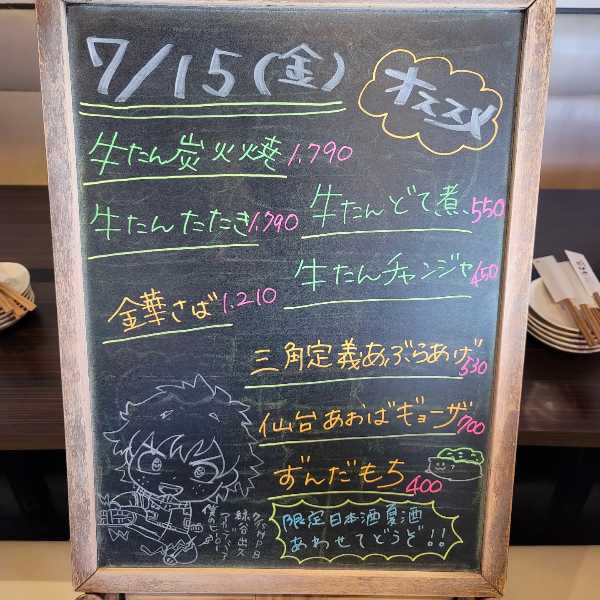 7/15(金)
オススメ
牛たん炭火焼 1,790
牛たんたたき 1,790
牛たんどて煮 550
牛たんチャンジャ 450
金華さば 1,210
三角定義あぶらあげ 530
仙台あおばギョーザ 700
ずんだもち 400
限定日本酒夏酒
あわせてどうぞ!!
7/15 HPB
緑谷出久